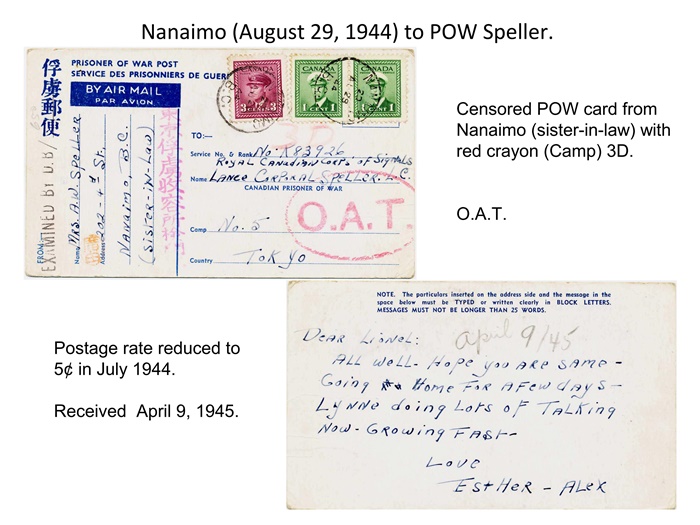 Nanaimo (August 29, 1944) to POW Speller.
俘虜郵便
PRISONER OF WAR POST
SERVICE DES PRISONNIERS DE GUER
BY AIR MAIL
PAR AVION
CANADA
3 3
CANADA
1 1
CANADA
1 1
EXAMINED BY D.B/
FROM:—
Name MRS. A.W. SPELLER
Address 202-4th St.
NANAIMO, B.C.
(SISTER-IN-LAW)
TO:—
3D
Service No. & Rank No. K83926
ROYAL CANADIAN CORPS OF SIGNALS
Name LANCE CORPORAL SPELLER. L.C.
CANADIAN PRISONER OF WAR
O.A.T.
Camp No. 5
Country TOKYO
Censored POW card from
Nanaimo (sister-in-law) with
red crayon (Camp) 3D.
O.A.T.
NOTE. The particulars inserted on the address side and the message in the
space below must be TYPED or written clearly in BLOCK LETTERS.
MESSAGES MUST NOT BE LONGER THAN 25 WORDS.
April 9/45
DEAR LIONEL:
ALL WELL- HOPE YOU ARE SAME-
GOING HOME FOR A FEW DAYS-
LYNNE doing LOTS OF TALKING
NOW- GROWING FAST-
LOVE
ESTHER - ALEX
Postage rate reduced to
5¢ in July 1944.
Received April 9, 1945.